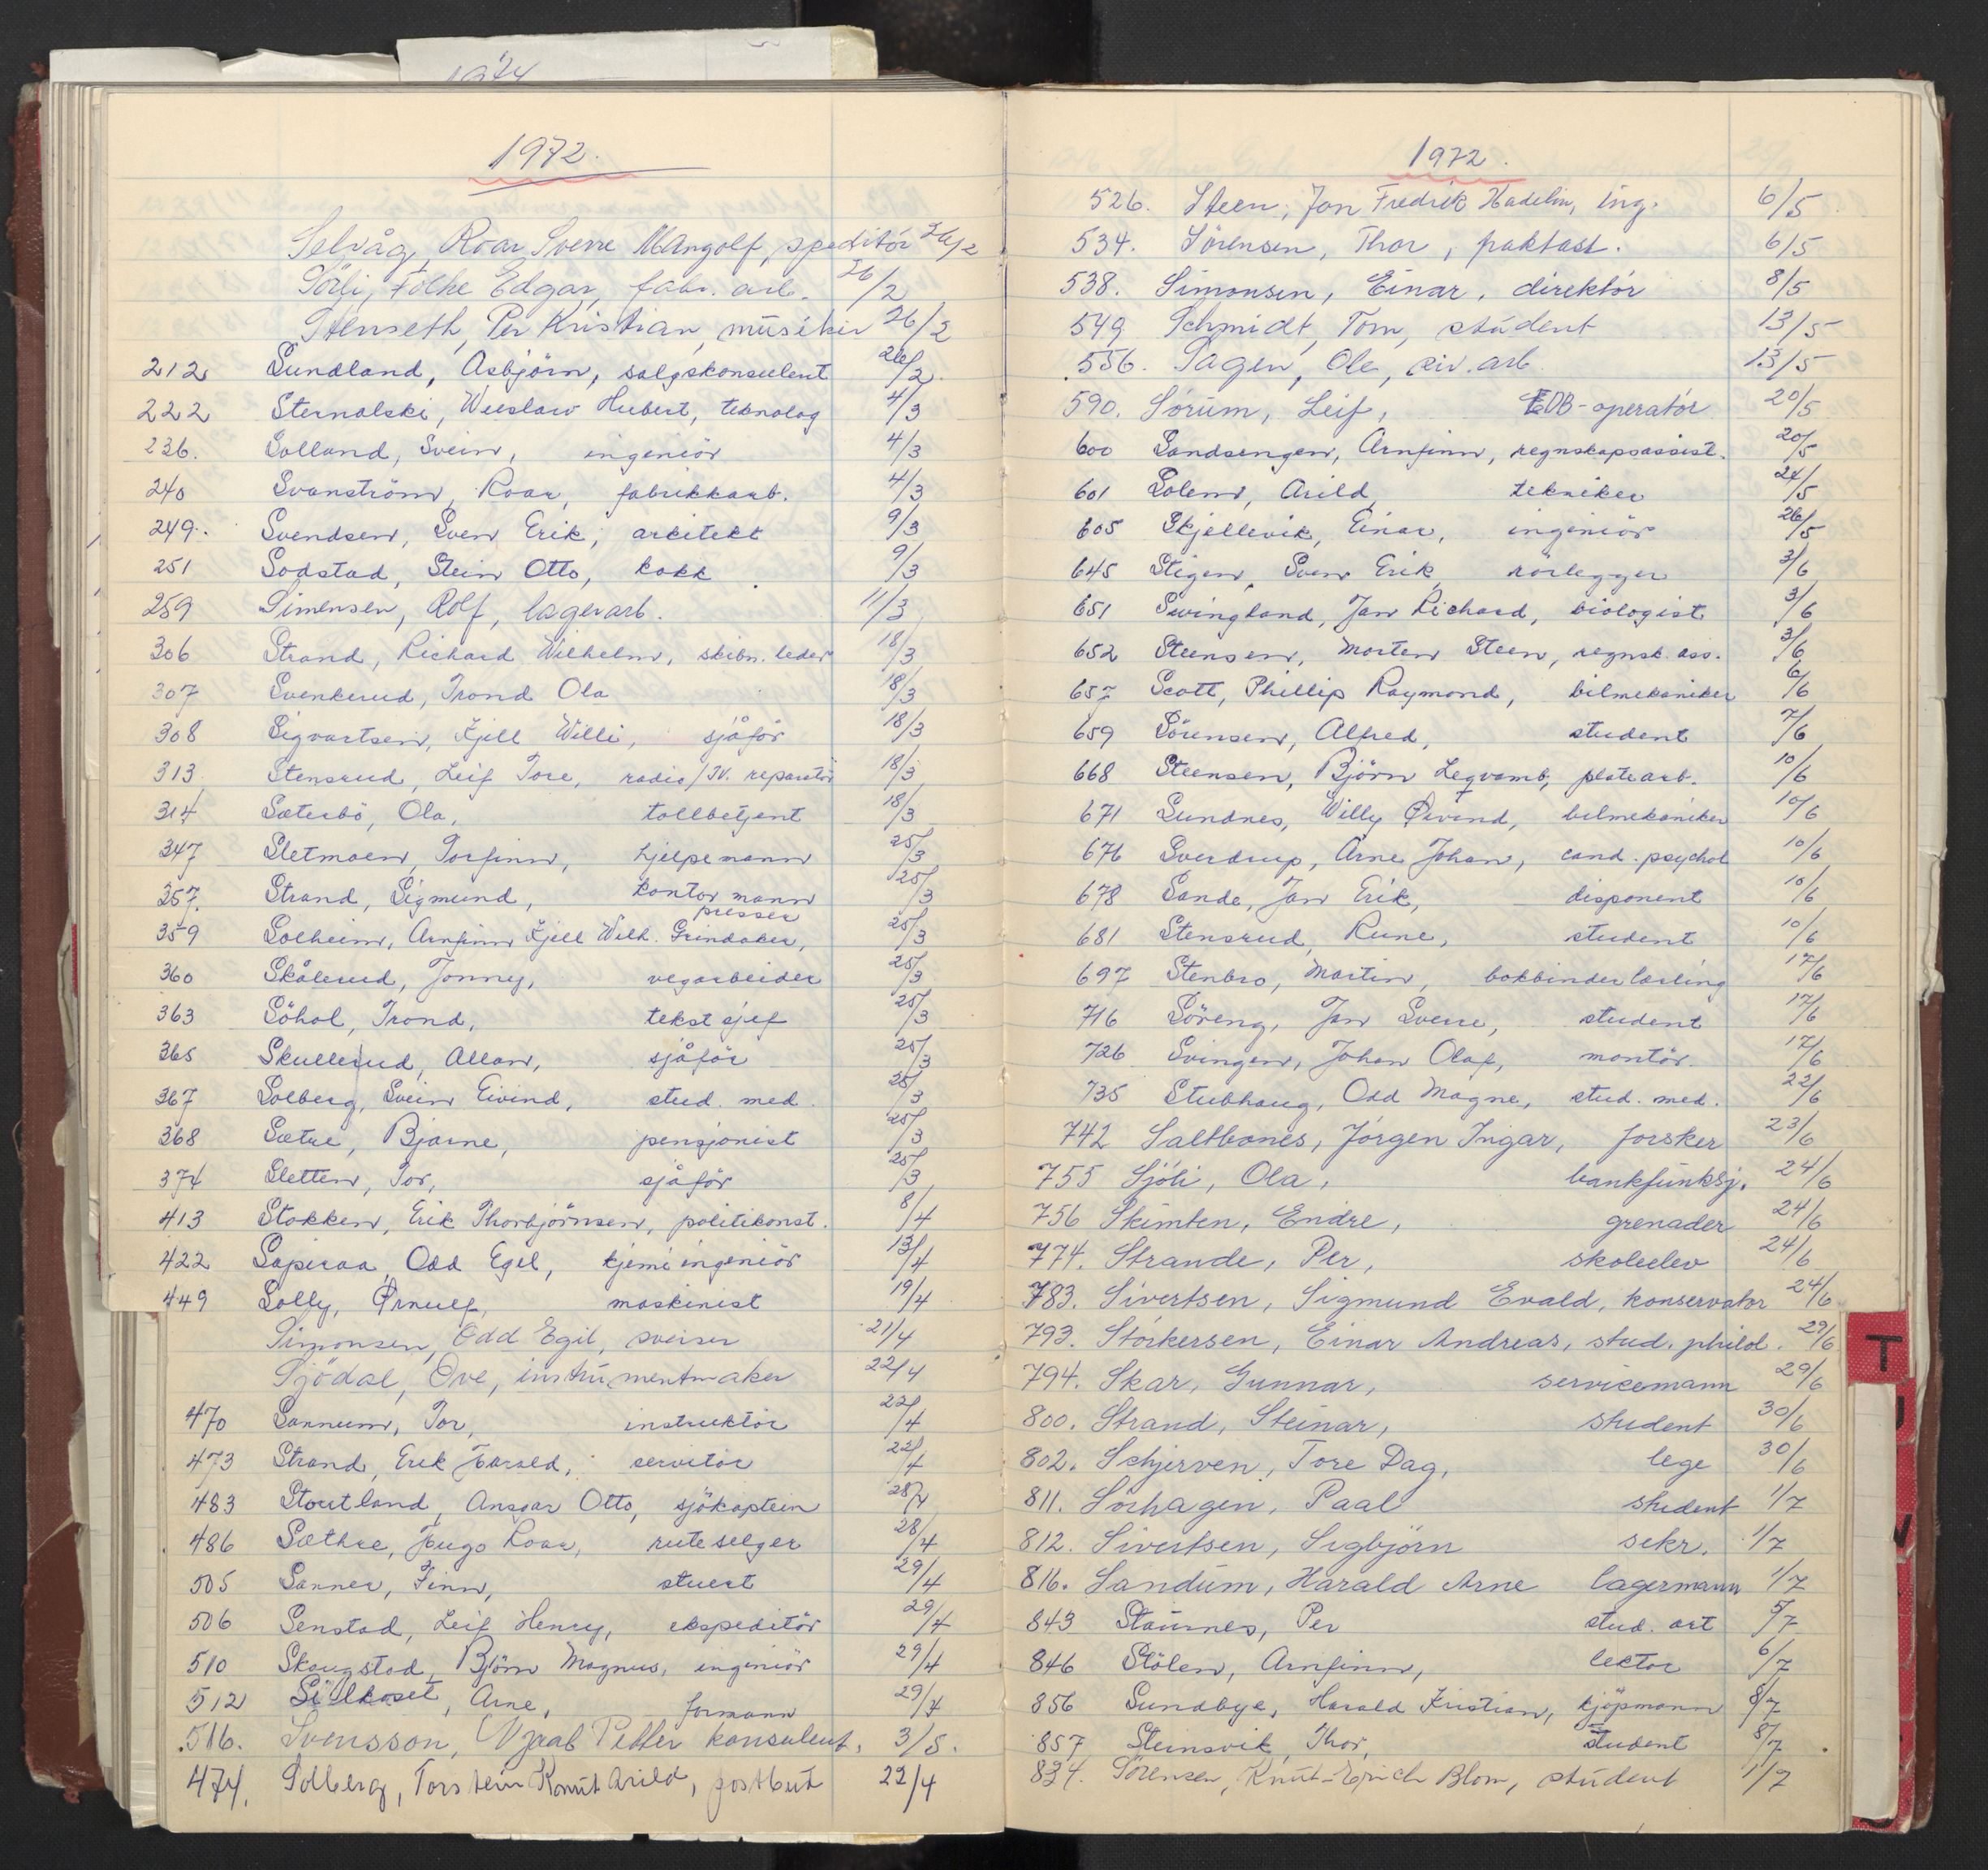 1974
1972.
Selvåg, Roar Sverre Mangolf, speditör 26/2
Sörli, Folke Edgar, fabr. arb. 26/2
Stenseth, Per Kristian, musiker 26/2
212 Sundland, Asbjörn, salgskonsulent 26/2
222 Sternalski, Wieslaw Hubert, teknolog 4/3
236. Solland, Svein, ingeniör 4/3
240 Svanström, Roar, fabrikkarb. 4/3
249. Svendsen, Sven Erik, arkitekt 9/3
251 Sodstad, Stein Otto, kokk 9/3
259 Simensen, Rolf, lagerarb. 11/3
306 Strand, Richard Wilhelm, skibn. leder 18/3
307 Svenkerud, Trond Ola 18/3
308 Sigvartsen, Kjell Willi, sjåför 18/3
313 Stensrud, Leif Tore, radio/TV. reparatör 18/3
314 Sæterbö, Ola, tollbetjent 18/3
347 Sletmoen, Torfinn, hjelpemann 25/3
357. Strand, Sigmund, kontormann 25/3
presser
359 Solheim, Arnfinn Kjell Wilh. Grindaker, 25/3
360 Skålerud, Jonny, vegarbeider 25/3
363 Söhol, Trond, tekstsjef 25/3
365 Skullerud, Allan, sjåför 25/3
367 Solberg, Svein Eivind, stud. med. 25/3
368 Sætre, Bjarne, pensjonist 25/3
374 Sletten, Tor, sjåför 25/3
413 Stokken, Erik Thorbjörnsen, politikonst. 8/4
422 Sapiraa, Odd Egil, kjemiingeniör 13/4
449 Solly, Ørnulf, maskinist 19/4
Simonsen, Odd Egil, sveiser 21/4
Sjödal, Ove, instrumentmaker 22/4
470 Sannum, Tor, instruktör 22/4
473 Strand, Erik Harald, servitör 22/4
483 Stourtland, Ansgar Otto, sjökaptein 28/4
486 Sæthre, Hugo Roar, ruteselger 28/4
505 Sanner, Finn, stuert 29/4
506 Senstad, Leif Henry, ekspeditör 29/4
510 Skaugstad, Björn Magnus, ingeniör 29/4
512 Silkoset, Arne, formann 29/4
516. Svensson, Petter konsulent, 3/5.
474. Solberg, Torstein Knut Arild, postbud 22/4
1972.
526. Steen, Jon Fredrik Hadelin, ing. 6/5
534. Sörensen, Thor, paktast. 6/5
538. Simonsen, Einar, direktör 8/5
549 Schmidt, Tom, student 13/5
556. Sagen, Ole, siv. arb. 13/5
590. Sörum, Leif, EDB-operatör 20/5
600 Sandsengen, Arnfinn, regnskapsassist. 20/5
601 Solem, Arild, tekniker 24/5
605 Skjellevik, Einar, ingeniör 26/5
645 Stigen, Sven Erik, rörlegger 3/6
651 Swingland, Jan Richard, biologist 3/6
652 Steensen, Morten Steen, regnsk. ass. 3/6
657 Scott, Phillip Raymond, bilmekaniker 6/6
659 Sörensen, Alfred, student 7/6
668 Steensen, Björn Legvamb, platearb. 10/6
671 Sundnes, Willy Øivind, bilmekaniker 10/6
676 Sverdrup, Arne Johan, cand. psychol 10/6
678 Sande, Jan Erik, disponent 10/6
681 Stensrud, Rune, student 10/6
697 Stenbro, Martin, bokbinderlærling 17/6
716 Söreng, Jan Sverre, student 17/6
726 Svingen, Johan Olaf, montör. 17/6
735 Stubhaug, Odd Magne, stud. med. 22/6
742 Saltbones, Jörgen Ingar, forsker 23/6
755 Sjöli, Ola, bankfunksj. 24/6
756 Skimten, Endre, grenader 24/6
774. Strande, Per, skoleelev 24/6
783. Sivertsen, Sigmund Evald, konservator 24/6
793. Störkersen, Einar Andreas, stud. philol. 29/6
794. Skar, Gunnar, servicemann 29/6
800. Strand, Steinar, student 30/6
802. Schjerven, Tore Dag, lege 30/6
811. Sörhagen, Paal student 1/7
812. Sivertsen, Sigbjörn sekr. 1/7
816. Sandum, Harald Arne lagermann 1/7
843 Staurnes, Per stud. art 5/7
846 Stölen, Arnfinn, lektor 6/7
856 Sundbye, Harald Kristian, kjöpmann 8/7
857 Steinsvik, Thor, student 8/7
834. Sörensen, Knut-Erich Blom, student 1/7
T